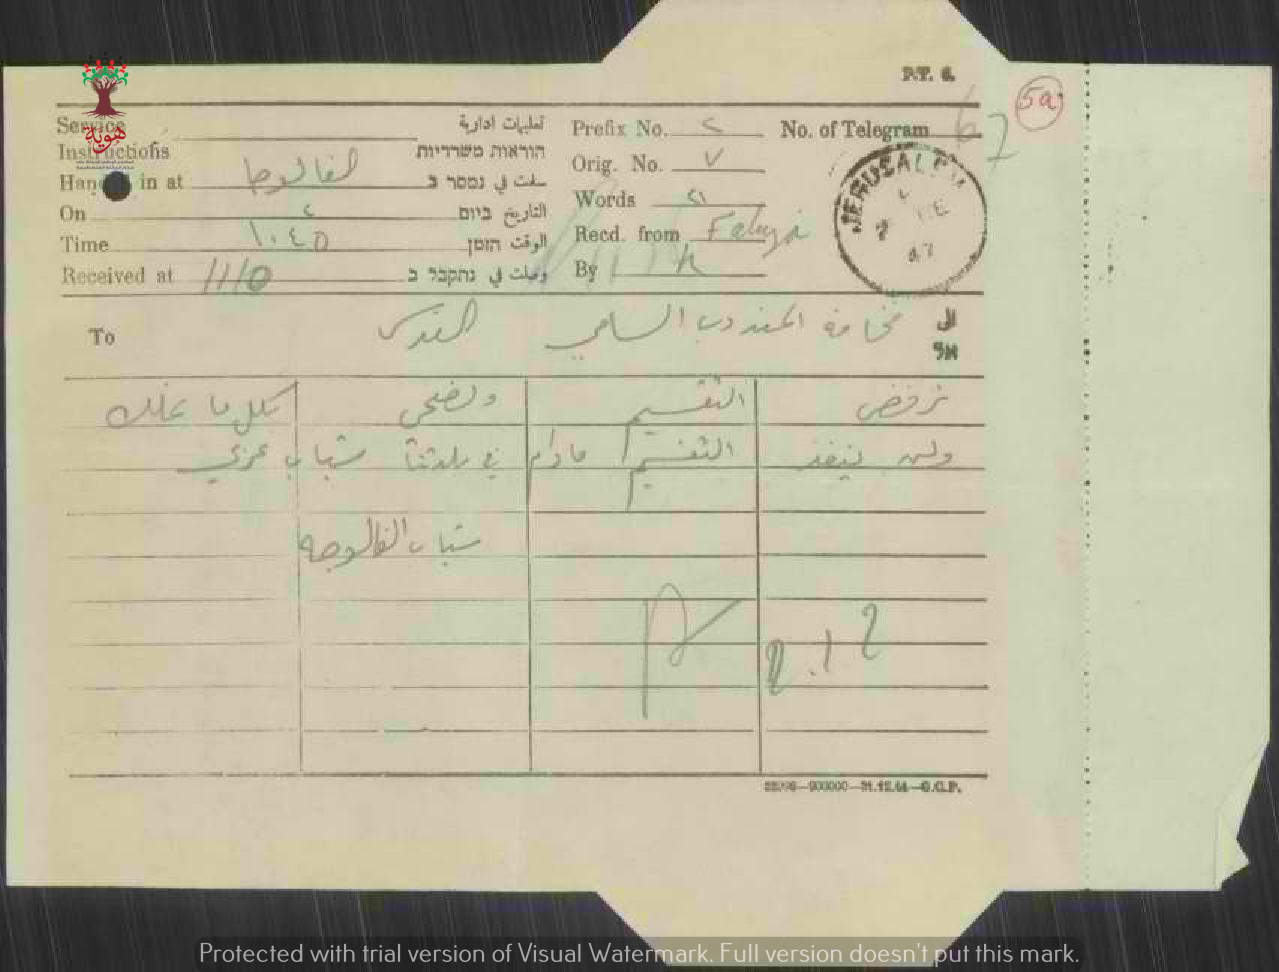 P.T. 6.
5a
Service تعليمات ادارية
Instructions הוראות משרדיות
Prefix No. ٢ No. of Telegram 67
Handed in at الفالوجا سلمت في נמסר ב
Orig. No. ٧
On ٢ التاريخ ביום
Words ٢١
Time ١٠٤٥ الوقت הזמן
Recd. from Faluja
Received at 1110 وصلت في נתקבל ב
By
JERUSALEM
2 DE
47
To فخامة المندوب السامي القدس الى
אל
نرفض التقسيم ونضحي بكل ما نملك
ولن ينفذ التقسيم مادام في بلدتنا شباب عربي
شباب الفالوجه
2.12
هوية
Protected with trial version of Visual Watermark. Full version doesn't put this mark.